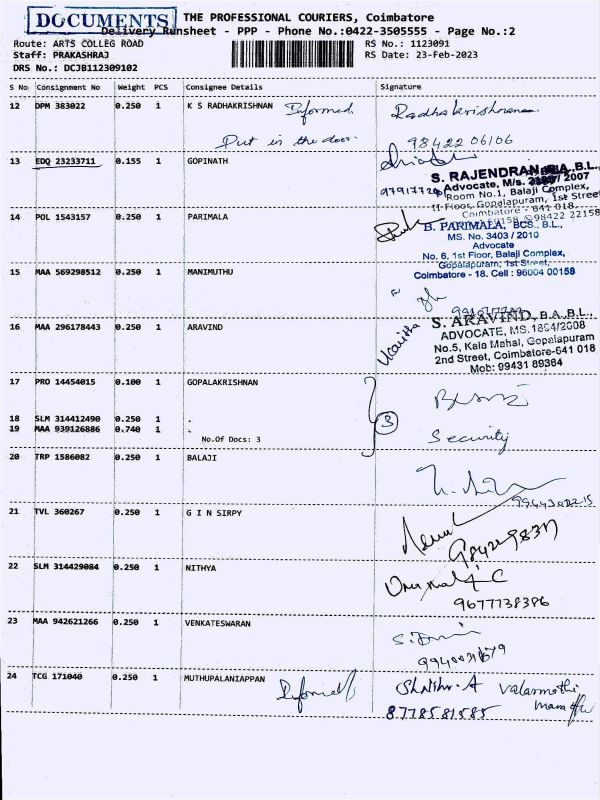 DOCUMENTS
THE PROFESSIONAL COURIERS, Coimbatore
Delivery Runsheet - PPP - Phone No.:0422-3505555 - Page No.:2
Route: ARTS COLLEG ROAD
RS No.: 1123091
Staff: PRAKASHRAJ
RS Date: 23-Feb-2023
DRS No.: DCJB112309102
S No Consignment No Weight PCS Consignee Details Signature
12 DPM 383022 0.250 1 K S RADHAKRISHNAN Informed Radhakrishnan
Put in the door 98422 06106
13 EDQ 23233711 0.155 1 GOPINATH
S. RAJENDRAN, B.A., B.L.,
Advocate, M/s. 2007
Room No.1, Balaji Complex,
II-Floor, Gopalapuram, 1st Street
Coimbatore - 641 018.
98422 22158
14 POL 1543157 0.250 1 PARIMALA
B. PARIMALA, BCS., B.L.,
MS. No. 3403 / 2010
Advocate
No. 6, 1st Floor, Balaji Complex,
Gopalapuram, 1st Street,
Coimbatore - 18. Cell : 96004 00158
15 MAA 569298512 0.250 1 MANIMUTHU
16 MAA 296178443 0.250 1 ARAVIND
S. ARAVIND, B.A.,B.L.,
ADVOCATE, MS.1864/2008
No.5, Kala Mahal, Gopalapuram
2nd Street, Coimbatore-641 018
Mob: 99431 89364
17 PRO 14454015 0.100 1 GOPALAKRISHNAN
18 SLM 314412490 0.250 1 .
19 MAA 939126886 0.740 1 .
No.Of Docs: 3
3
Security
20 TRP 1586082 0.250 1 BALAJI
21 TVL 360267 0.250 1 G I N SIRPY
22 SLM 314429084 0.250 1 NITHYA
9677738386
23 MAA 942621266 0.250 1 VENKATESWARAN
24 TCG 171040 0.250 1 MUTHUPALANIAPPAN Informed
8778581585